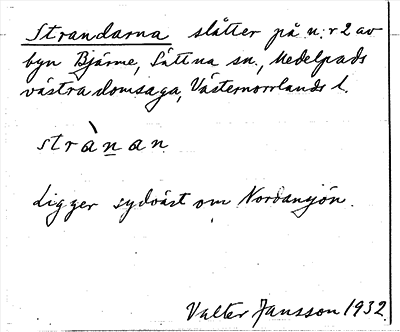 Strandarna slåtter på n:r 2 av
byn Bjärme, Sättna sn., Medelpads
västra domsaga, Västernorrlands l.
strànan
Ligger sydväst om Nordansjön.
Valter Jansson 1932.